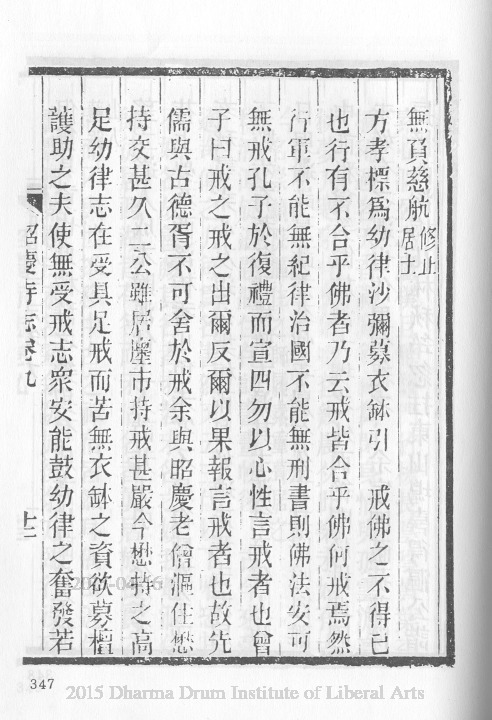 無負慈航 修止居士
方孝標為幼律沙彌募衣鉢引 戒佛之不得已
也行有不合乎佛者乃云戒皆合乎佛何戒焉然
行軍不能無紀律治國不能無刑書則佛法安可
無戒孔子於復禮而宣四勿以心性言戒者也曾
子曰戒之戒之出爾反爾以果報言戒者也故先
儒與古德胥不可舍於戒余與昭慶老僧漚住懋
持交甚久二公雖居廛市持戒甚嚴今懋持之高
足幼律志在受具足戒而苦無衣鉢之資欲募檀
護助之夫使無受戒志眾安能鼓幼律之奮發若
昭慶寺志卷九
十二
347
2015 Dharma Drum Institute of Liberal Arts